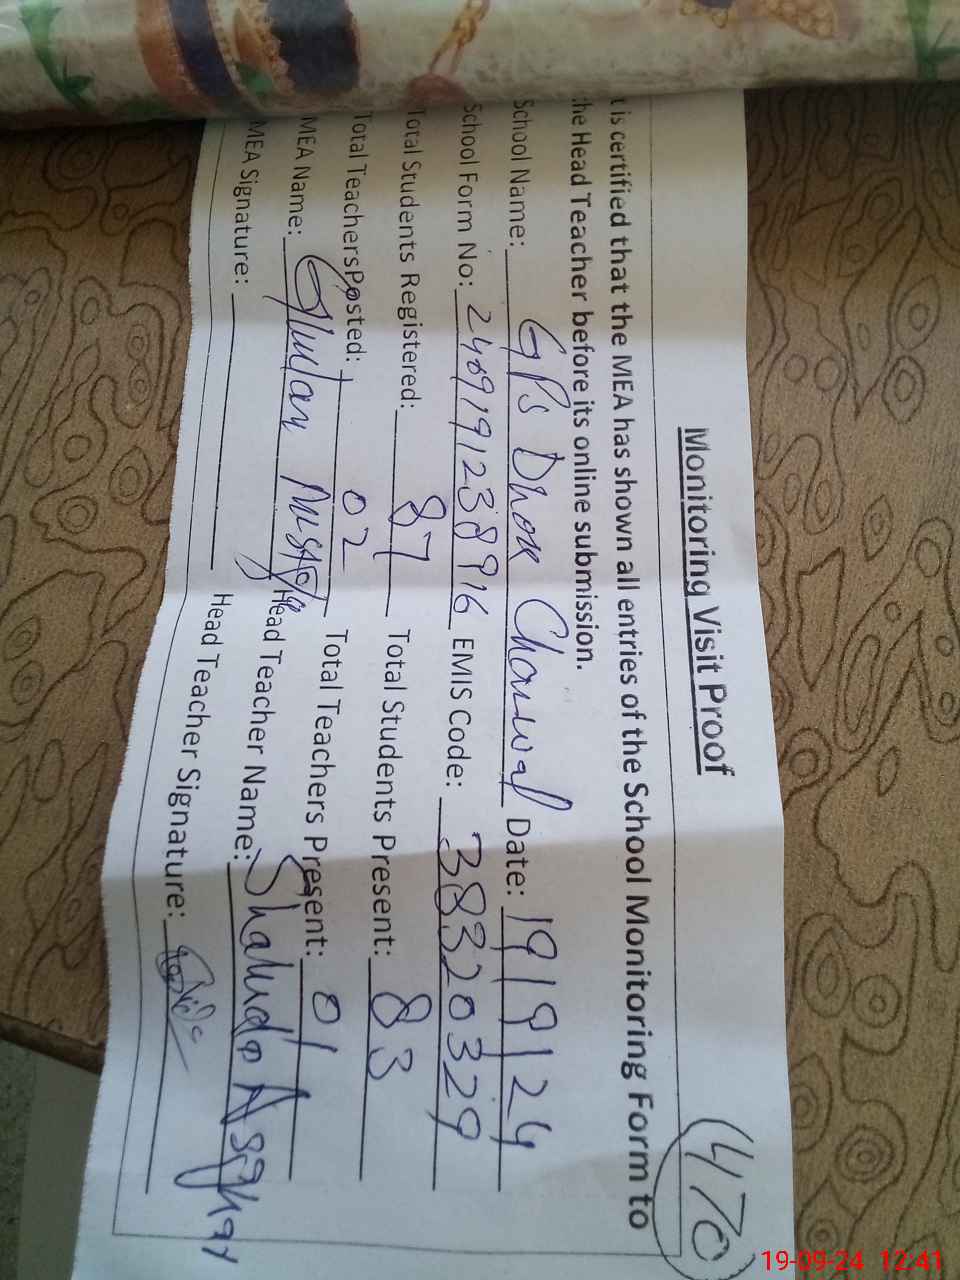 470
Monitoring Visit Proof
t is certified that the MEA has shown all entries of the School Monitoring Form to
the Head Teacher before its online submission.
School Name: GPS Dhok Charwal Date: 19/9/24
School Form No: 2409191238916 EMIS Code: 38320329
Total Students Registered: 87 Total Students Present: 83
Total Teachers Posted: 02 Total Teachers Present: 01
MEA Name: Ghulam Mustafa Head Teacher Name: Shahida Asghar
MEA Signature: Head Teacher Signature:
19-09-24 12:41